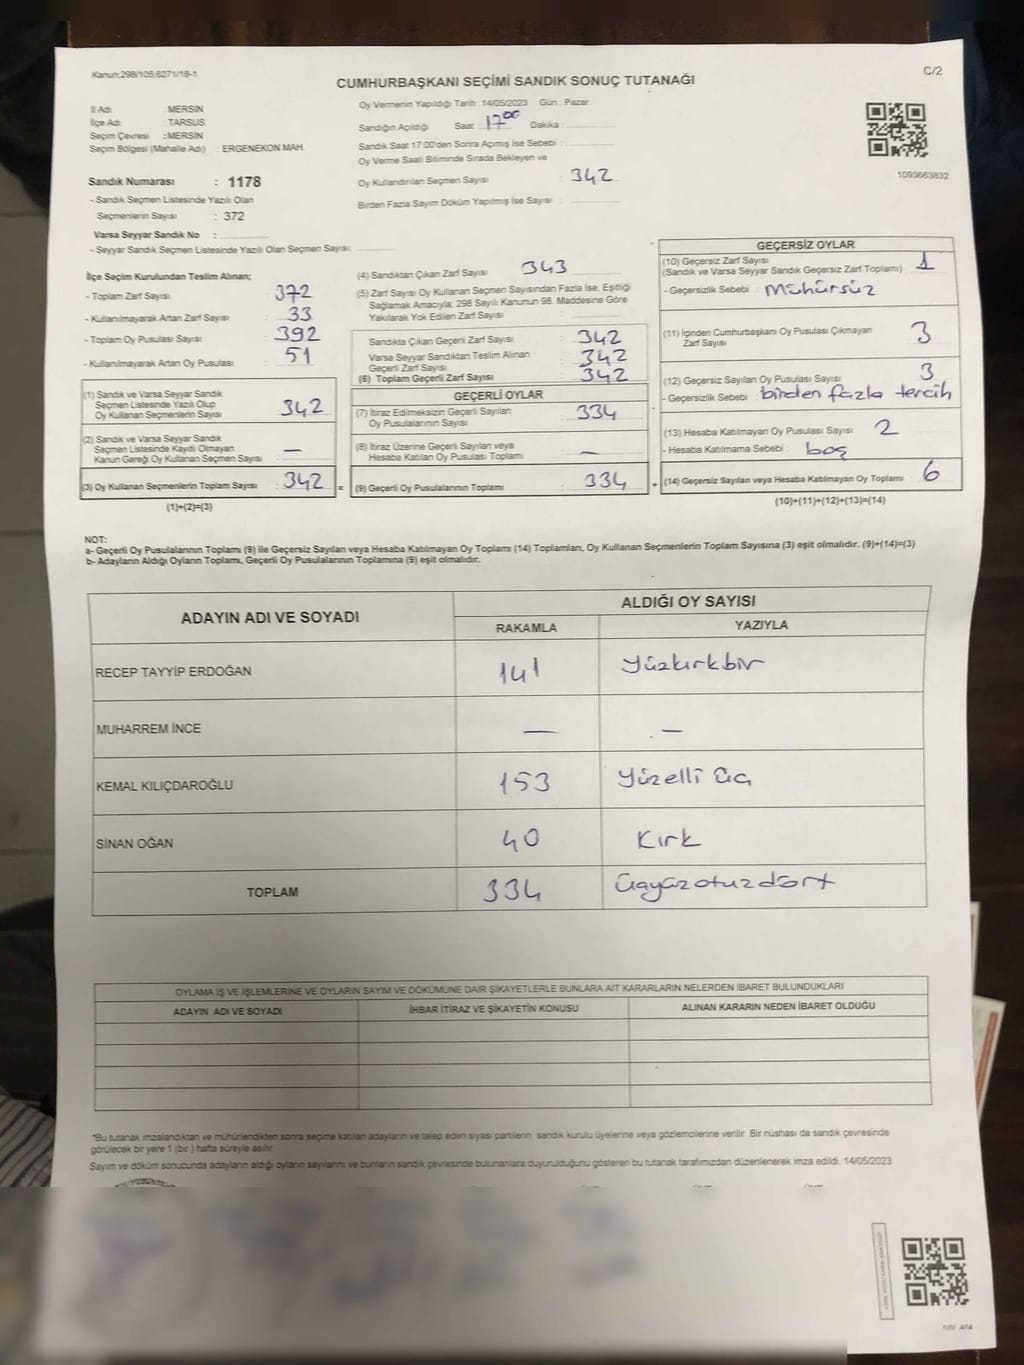 Kanun;298/105;6271/18-1
C/2
CUMHURBAŞKANI SEÇİMİ SANDIK SONUÇ TUTANAĞI
İl Adı : MERSİN
İlçe Adı : TARSUS
Seçim Çevresi : MERSİN
Seçim Bölgesi (Mahalle Adı) : ERGENEKON MAH.
Oy Vermenin Yapıldığı Tarih :14/05/2023 Gün : Pazar
Sandığın Açıldığı Saat : 17 00 Dakika :
Sandık Saat 17:00'den Sonra Açımış İse Sebebi :
Oy Verme Saati Bitiminde Sırada Bekleyen ve
Oy Kullandırılan Seçmen Sayısı : 342
Birden Fazla Sayım Döküm Yapılmış İse Sayısı :
1093663832
Sandık Numarası : 1178
- Sandık Seçmen Listesinde Yazılı Olan
Seçmenlerin Sayısı : 372
Varsa Seyyar Sandık No :
- Seyyar Sandık Seçmen Listesinde Yazılı Olan Seçmen Sayısı:
İlçe Seçim Kurulundan Teslim Alınan;
- Toplam Zarf Sayısı : 372
- Kullanılmayarak Artan Zarf Sayısı : 33
- Toplam Oy Pusulası Sayısı : 392
- Kullanılmayarak Artan Oy Pusulası : 51
(1) Sandık ve Varsa Seyyar Sandık
Seçmen Listesinde Yazılı Olup
Oy Kullanan Seçmenlerin Sayısı : 342
(2) Sandık ve Varsa Seyyar Sandık
Seçmen Listesinde Kayıtlı Olmayan
Kanun Gereği Oy Kullanan Seçmen Sayısı : —
(3) Oy Kullanan Seçmenlerin Toplam Sayısı : 342 =
(1)+(2)=(3)
(4) Sandıktan Çıkan Zarf Sayısı : 343
(5) Zarf Sayısı Oy Kullanan Seçmen Sayısından Fazla İse, Eşitliği
Sağlamak Amacıyla; 298 Sayılı Kanunun 98. Maddesine Göre
Yakılarak Yok Edilen Zarf Sayısı :
Sandıkta Çıkan Geçerli Zarf Sayısı : 342
Varsa Seyyar Sandıktan Teslim Alınan
Geçerli Zarf Sayısı : 342
(6) Toplam Geçerli Zarf Sayısı : 342
GEÇERLİ OYLAR
(7) İtiraz Edilmeksizin Geçerli Sayılan
Oy Pusulalarının Sayısı : 334
(8) İtiraz Üzerine Geçerli Sayılan veya
Hesaba Katılan Oy Pusulası Toplamı : —
(9) Geçerli Oy Pusulalarının Toplamı : 334 +
GEÇERSİZ OYLAR
(10) Geçersiz Zarf Sayısı
(Sandık ve Varsa Seyyar Sandık Geçersiz Zarf Toplamı) : 1
- Geçersizlik Sebebi : Mühürsüz
(11) İçinden Cumhurbaşkanı Oy Pusulası Çıkmayan
Zarf Sayısı : 3
(12) Geçersiz Sayılan Oy Pusulası Sayısı : 3
- Geçersizlik Sebebi : birden fazla tercih
(13) Hesaba Katılmayan Oy Pusulası Sayısı : 2
- Hesaba Katılmama Sebebi : boş
(14) Geçersiz Sayılan veya Hesaba Katılmayan Oy Toplamı : 6
(10)+(11)+(12)+(13)=(14)
NOT:
a- Geçerli Oy Pusulalarının Toplamı (9) ile Geçersiz Sayılan veya Hesaba Katılmayan Oy Toplamı (14) Toplamları, Oy Kullanan Seçmenlerin Toplam Sayısına (3) eşit olmalıdır. (9)+(14)=(3)
b- Adayların Aldığı Oyların Toplamı, Geçerli Oy Pusulalarının Toplamına (9) eşit olmalıdır.
ADAYIN ADI VE SOYADI
ALDIĞI OY SAYISI
RAKAMLA YAZIYLA
RECEP TAYYİP ERDOĞAN 141 Yüzkırkbir
MUHARREM İNCE — —
KEMAL KILIÇDAROĞLU 153 Yüzelli üç
SİNAN OĞAN 40 Kırk
TOPLAM 334 üçyüzotuzdört
OYLAMA İŞ VE İŞLEMLERİNE VE OYLARIN SAYIM VE DÖKÜMÜNE DAİR ŞİKAYETLERLE BUNLARA AİT KARARLARIN NELERDEN İBARET BULUNDUKLARI
ADAYIN ADI VE SOYADI İHBAR İTİRAZ VE ŞİKAYETİN KONUSU ALINAN KARARIN NEDEN İBARET OLDUĞU
*Bu tutanak imzalandıktan ve mühürlendikten sonra seçime katılan adayların ve talep eden siyasi partilerin sandık kurulu üyelerine veya gözlemcilerine verilir. Bir nüshası da sandık çevresinde
görülecek bir yere 1 (bir ) hafta süreyle asılır.
Sayım ve döküm sonucunda adayların aldığı oyların sayılarını ve bunların sandık çevresinde bulunanlara duyurulduğunu gösteren bu tutanak tarafımızdan düzenlenerek imza edildi. 14/05/2023